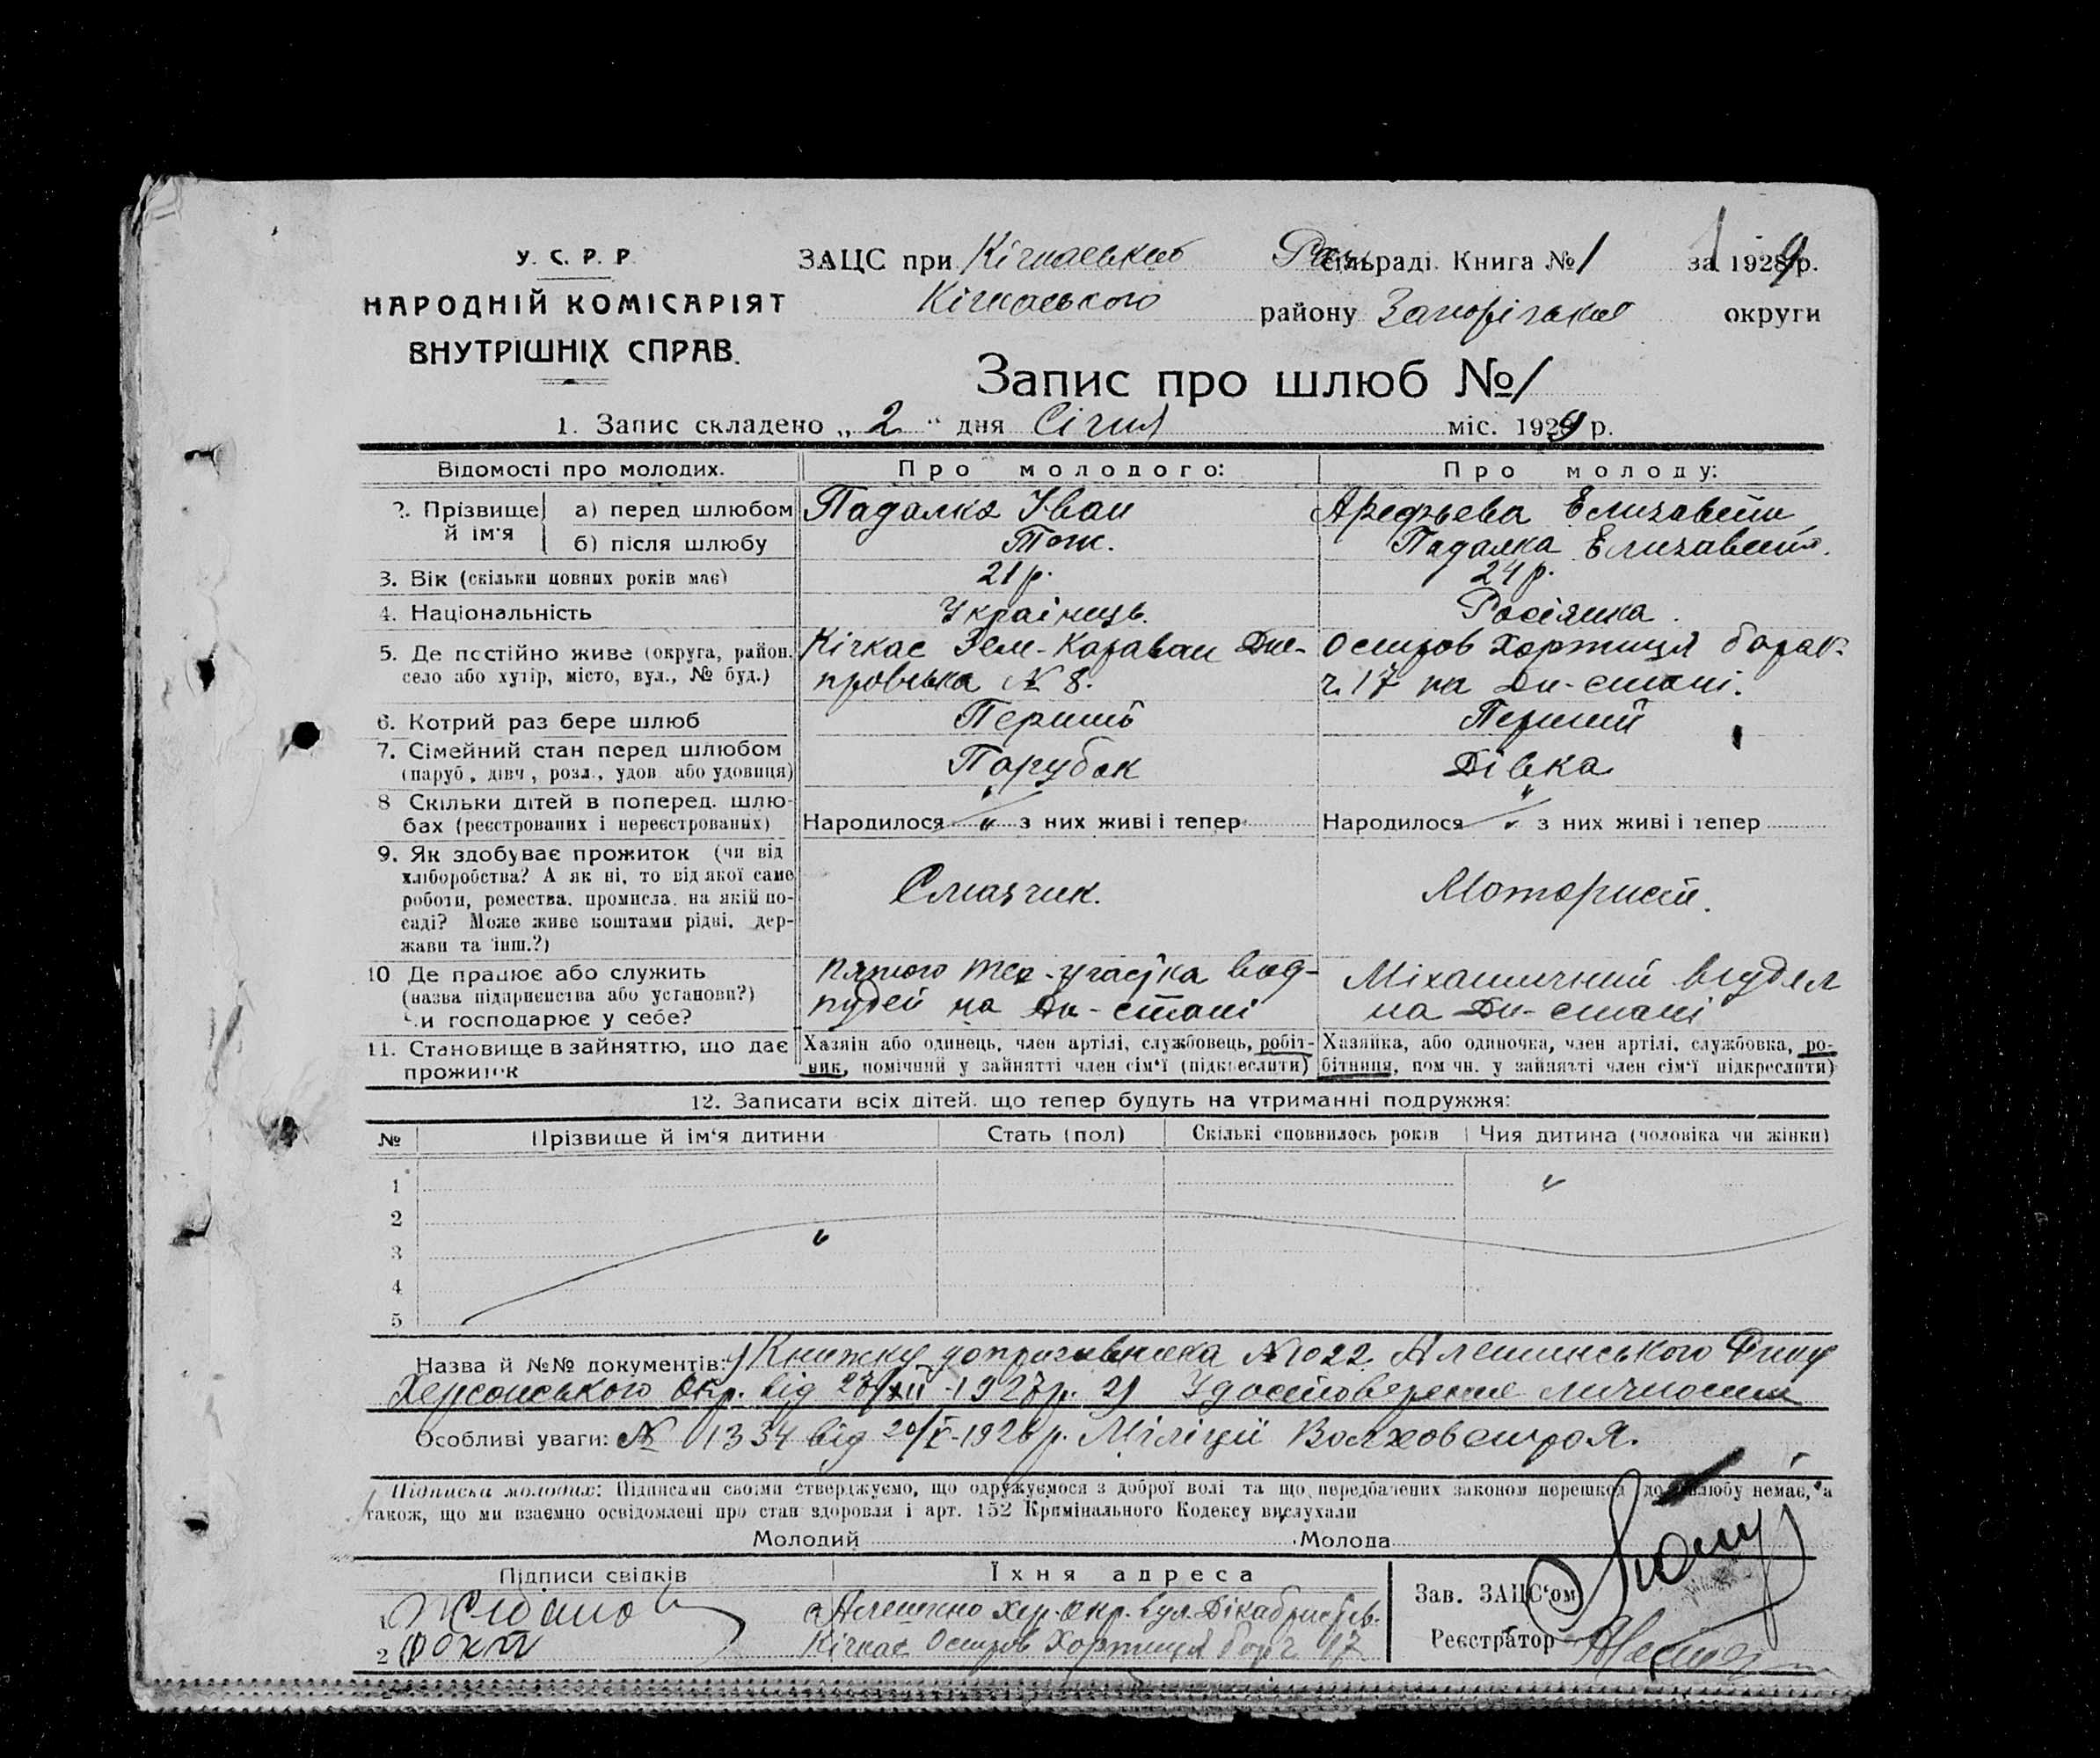 У. С. Р. Р.
НАРОДНІЙ КОМІСАРІЯТ
ВНУТРІШНІХ СПРАВ.
ЗАЦС при Кічкаській Рай сільраді. Книга № 1 за 1929 р.
Кічкаського району Запорізької округи
Запис про шлюб № 1
1. Запис складено „ 2 “ дня Січня міс. 1929 р.
Відомості про молодих. Про молодого: Про молоду:
2. Прізвище й ім'я а) перед шлюбом Падалка Іван Арефьева Елизавета
б) після шлюбу Тож. Падалка Елизавета.
3. Вік (скільки повних років має) 21 р. 24 р.
4. Національність Українець. Росіянка.
5. Де постійно живе (округа, район, Кічкас Зем-Караван Дне- Остров Хортиця барак.
село або хутір, місто, вул., № буд.) провська № 8. ч. 17 на Дн-стані.
6. Котрий раз бере шлюб Перший Перший
7. Сімейний стан перед шлюбом Парубок Дівка
(паруб., дівч., розл., удов. або удовиця)
8 Скільки дітей в поперед. шлю-
бах (реєстрованих і нереєстрованих) Народилося " з них живі і тепер Народилося " з них живі і тепер
9. Як здобуває прожиток (чи від
хліборобства? А як ні, то від якої саме
роботи, ремества, промисла, на якій по- Смазчик. Моторист.
саді? Може живе коштами рідні, дер-
жави та інш.?)
10 Де працює або служить пятого участка Міханичний відділ
(назва підприємства або установи?) на Дн-стані на Дн-стані
чи господарює у себе?
11. Становище в зайняттю, що дає Хазяїн або одинець, член артілі, службовець, робіт- Хазяйка, або одиночка, член артілі, службовка, ро-
прожиток ник, помічний у зайнятті член сім'ї (підкреслити) бітниця, пом чн. у зайнятті член сім'ї підкреслити)
12. Записати всіх дітей, що тепер будуть на утриманні подружжя:
№ Прізвище й ім'я дитини Стать (пол) Скількі сповнилось років Чия дитина (чоловіка чи жінки)
1
2
3
4
5
Назва й №№ документів: 1) Книжку допризивника № 1022 Алешинського
Херсонського Окр. від 27/XII-1927 р. 2) Удостоверение личности
Особливі уваги: № 1334 від 20/V-1926 р. Міліції Волховстроя.
Підписка молодих: Підписами своїми стверджуємо, що одружуємося з доброї волі та що, передбачених законом перешкод до шлюбу немає, а
також, що ми взаємно освідомлені про стан здоровля і арт. 152 Кримінального Кодексу вислухали
Молодий Молода
Підписи свідків Їхня адреса
1 Алешино Хер. Окр. вул. Дікабристів.
2 Кічкас Остров Хортиця бар ч 17
Зав. ЗАЦС'ом
Реєстратор